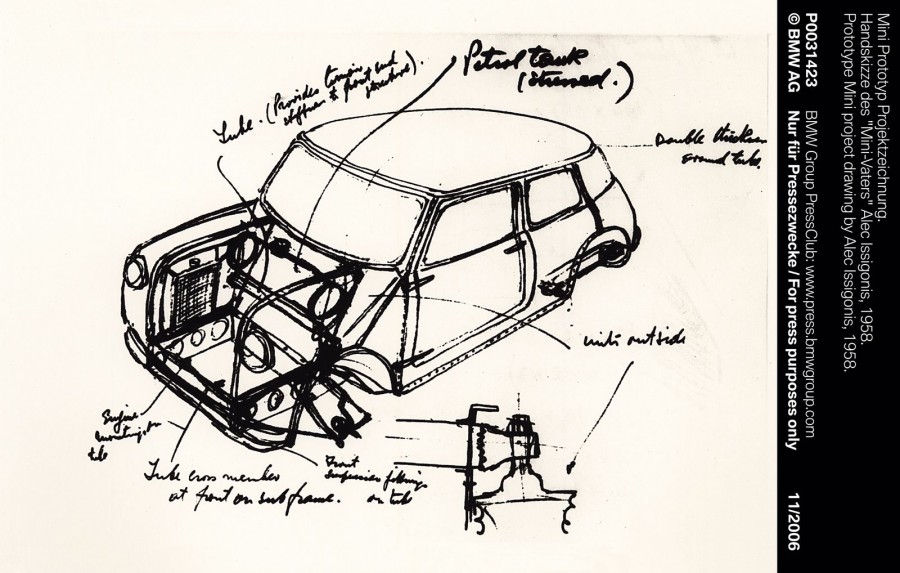 Petrol tank
(stressed.)
Tube. (Provides torsion
stiffness to front end
structure).
Double thickness
around tube.
units outside
Engine
mounting on
tube
Tube cross member
at front on subframe.
Front
suspension fittings
on tube
Mini Prototyp Projektzeichnung.
Handskizze des "Mini-Vaters" Alec Issigonis, 1958.
Prototype Mini project drawing by Alec Issigonis, 1958.
P0031423 BMW Group PressClub: www.press.bmwgroup.com
© BMW AG Nur für Pressezwecke / For press purposes only 11/2006